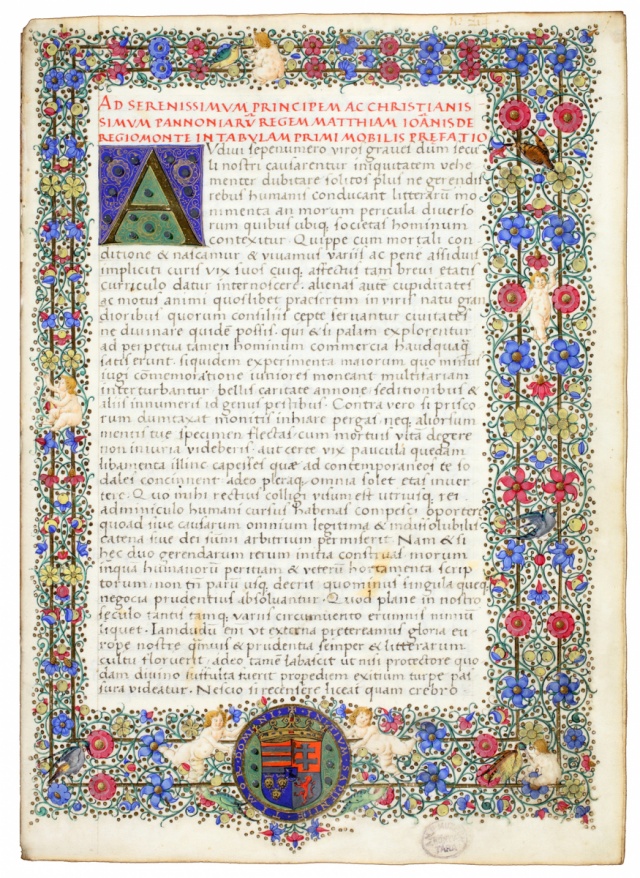 AD SERENISSIMVM PRINCIPEM AC CHRISTIANIS
SIMVM PANNONIARV̄ REGEM MATTHIAM IOĀNIS DE
REGIOMONTE IN TABVLAM PRIMI MOBILIS PREFATIO
AVdiui sepenumero viros graues dum secu
li nostri causarentur iniquitatem vehe
menter dubitare solitos plus ne gerendis
rebus humanis conducant litterarū mo
nimenta an morum pericula diuerso
rum quibus ubiq; societas hominum
contexitur. Quippe cum mortali con
ditione & nascamur & viuamus variis ac pene assiduis
impliciti curis vix suos cuiq; affectus tam breui etatis
curriculo datur internoscere. alienas aute cupiditates
ac motus animi quoslibet praesertim in viris natu gran
dioribus quorum consiliis cepte seruantur ciuitates
ne diuinare quidē possis. qui & si palam explorentur
ad perpetua tamen hominum commercia haudquaq̄
satis erunt. siquidem experimenta maiorum quo minus
iugi cōmemoratione iuniores moneant multifariam
interturbantur bellis caritate annone seditionibus &
aliis innumeris id genus pestibus. Contra vero si prisco
rum dumtaxat monitis inhiare pergas neq; aliorsum
mentis tue specimen flectas cum mortuis vitā degere
non iniuria videberis. aut certe vix paucula quedam
libamenta illinc capesses quae ad contemporaneos te so
dales concinnent adeo pleraq; omnia solet etas inuer
tere. Quo mihi rectius colligi visum est utriusq; rei
adminiculo humani cursus habenas compesci oportere
quoad siue causarum omnium legitima & indissolubilis
catena siue dei summi arbitrium permiserit. Nam & si
hec duo gerendarum rerum initia construas morum
inquā humanorū peritiam & veterū hortamenta scrip
torum non tn̄ parū usq; deerit quominus singula queq;
negocia prudentius absoluantur. Quod plane in nostro
seculo tantis tamq; variis circumuento erumnis nimiū
liquet. Iamdudū em̄ vt externa pretereamus gloria eu
rope nostre qn̄uis & prudentia semper & litterarum
cultu floruerit. adeo tamē labascit ut nisi protectore quo
dam diuino suffulta fuerit propediem exitium turpe pas
sura videatur. Nescio si recensere liceat quam crebro